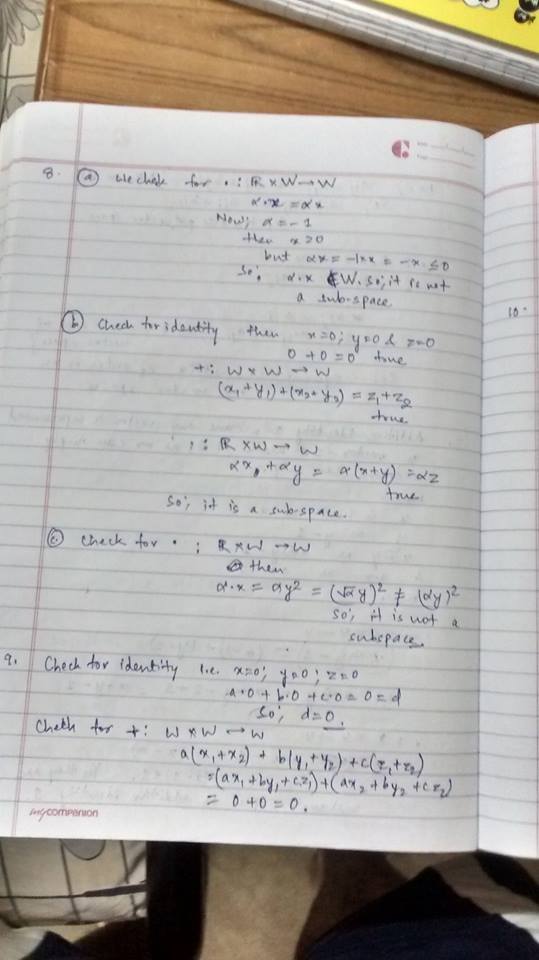 8. (a) We check for • : R × W → W
α • x = αx
Now; α = -1
then x ≥ 0
but αx = -1×x = -x ≤ 0
So; α•x ∉ W. So; it is not
a sub-space.
10.
(b) Check for identity then x=0; y=0 & z=0
0 + 0 = 0 true
+ : W × W → W
(x₁+y₁)+(x₂+y₂) = z₁+z₂
true
• : R × W → W
αx + αy = α(x+y) = αz
true
So; it is a sub-space.
(c) Check for • : R × W → W
then
α•x = αy² = (√α y)² ≠ (αy)²
So; it is not a
subspace.
9. Check for identity i.e. x=0; y=0; z=0
a•0 + b•0 + c•0 = 0 = d
So; d=0.
Check for + : W × W → W
a(x₁+x₂) + b(y₁+y₂) + c(z₁+z₂)
= (ax₁+by₁+cz₁) + (ax₂+by₂+cz₂)
= 0+0 = 0.
mycompanion